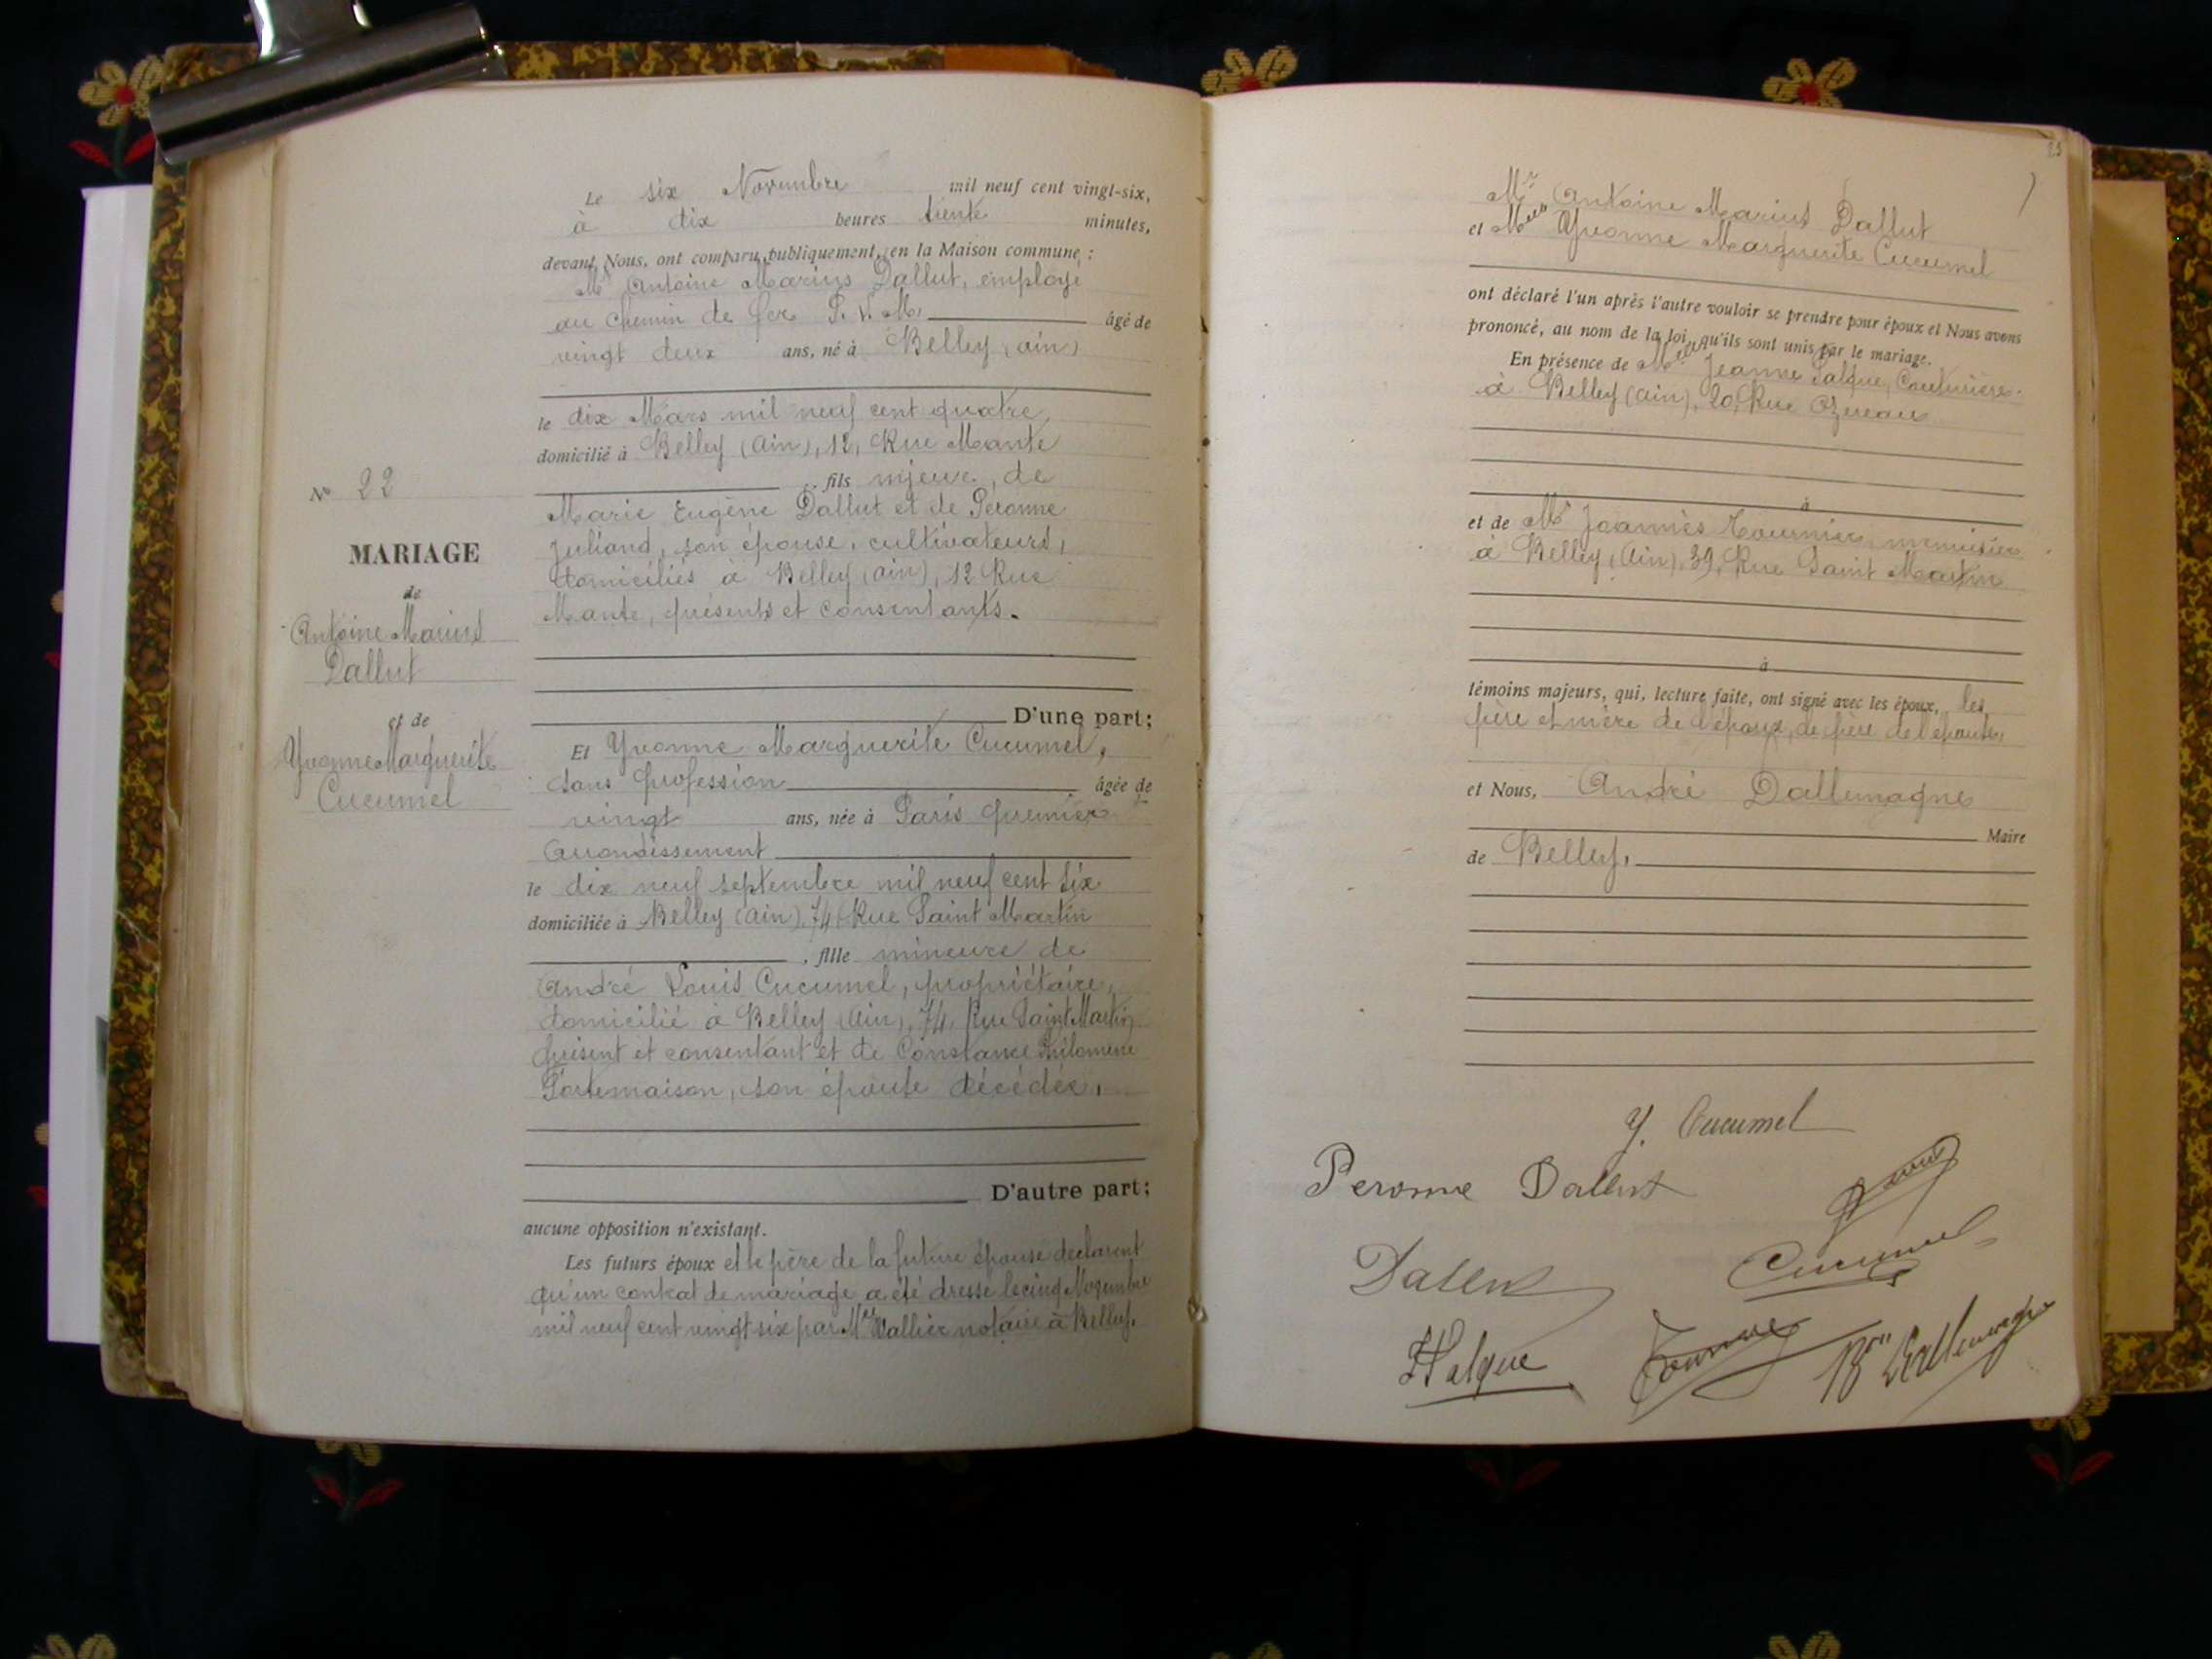 Le six Novembre mil neuf cent vingt-six,
à dix heures trente minutes,
devant Nous, ont comparu publiquement, en la Maison commune :
Mr Antoine Marius Dallut, employé
au chemin de fer P. L. M. âgé de
vingt deux ans, né à Belley (Ain)
le dix Mars mil neuf cent quatre,
domicilié à Belley (Ain), 12, Rue Mante
, fils majeur, de
Marie Eugène Dallut et de Peronne
Juliand, son épouse, cultivateurs,
domiciliés à Belley (Ain), 12 Rue
Mante, présents et consentants.
D'une part;
No 22
MARIAGE
de
Antoine Marius
Dallut
et de
Yvonne Marguerite
Cucumel
Et Yvonne Marguerite Cucumel,
sans profession âgée de
vingt ans, née à Paris premier
arrondissement
le dix neuf septembre mil neuf cent six
domiciliée à Belley (Ain), 74 Rue Saint Martin
, fille mineure de
André Louis Cucumel, propriétaire,
domicilié à Belley (Ain), 74, Rue Saint Martin
présent et consentant et de Constance Philomène
Portemaison, son épouse décédée,
D'autre part;
aucune opposition n'existant.
Les futurs époux et le père de la future épouse déclarent
qu'un contrat de mariage a été dressé le cinq Novembre
mil neuf cent vingt six par Me Wallier notaire à Belley.
23
Mr Antoine Marius Dallut
et Melle Yvonne Marguerite Cucumel
ont déclaré l'un après l'autre vouloir se prendre pour époux et Nous avons
prononcé, au nom de la loi, qu'ils sont unis par le mariage.
En présence de Melle Jeanne Falque, Couturière
à Belley (Ain), 20, Rue
à
et de Mr Joannès Tournier, menuisier
à Belley (Ain), 39, Rue Saint Martin
à
témoins majeurs, qui, lecture faite, ont signé avec les époux, les
père et mère de l'époux, le père de l'épouse,
et Nous, André Dallemagne
Maire
de Belley.
Y. Cucumel
Peronne Dallut
Dallut
Cucumel
Falque
Tournier
Bon Dallemagne